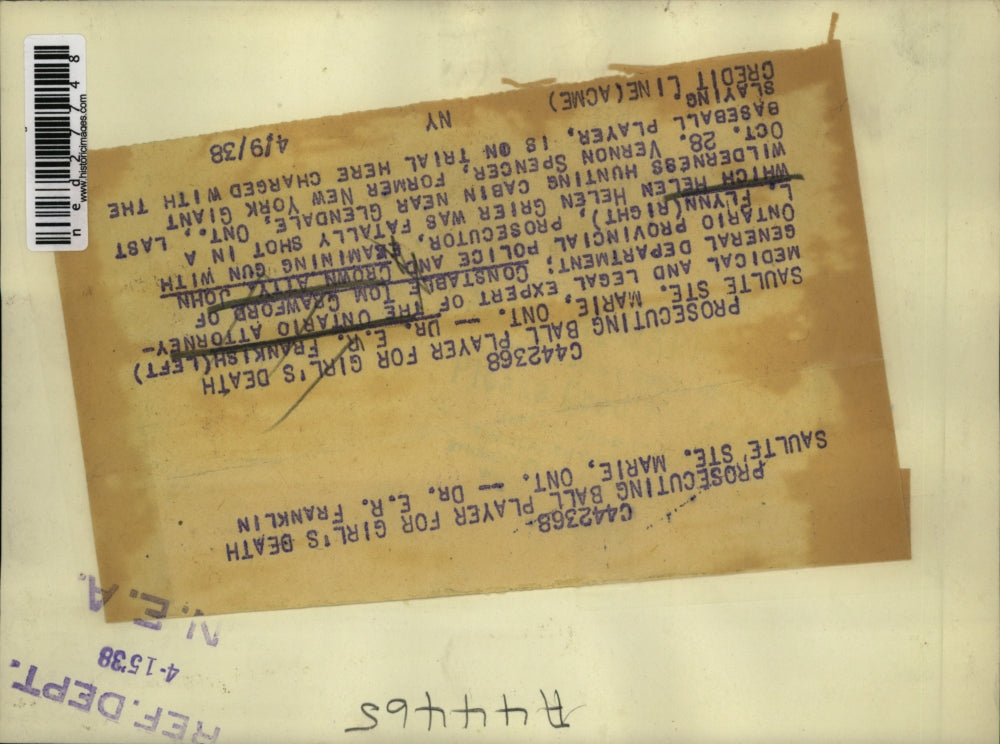 A44465
REF. DEPT.
4-15'38
N.E.A.
C442368
PROSECUTING BALL PLAYER FOR GIRL'S DEATH
SAULTE STE. MARIE, ONT. -- DR. E.R. FRANKLIN
C442368
PROSECUTING BALL PLAYER FOR GIRL'S DEATH
SAULTE STE. MARIE, ONT. -- DR. E.R. FRANKISH(LEFT)
MEDICAL AND LEGAL EXPERT OF THE ONTARIO ATTORNEY-
GENERAL DEPARTMENT; CONSTABLE TOM CRAWFORD OF
ONTARIO PROVINCIAL POLICE AND CROWN ATTY. JOHN
L. FLYNN(RIGHT), PROSECUTOR, EXAMINING GUN WITH
WHICH HELEN HELEN GRIER WAS FATALLY SHOT IN A
WILDERNESS HUNTING CABIN NEAR GLENDALE, ONT., LAST
OCT. 28. VERNON SPENCER, FORMER NEW YORK GIANT
BASEBALL PLAYER, IS ON TRIAL HERE CHARGED WITH THE
SLAYING.
CREDIT LINE(ACME) NY 4/9/38
www.historicimages.com
ned27748